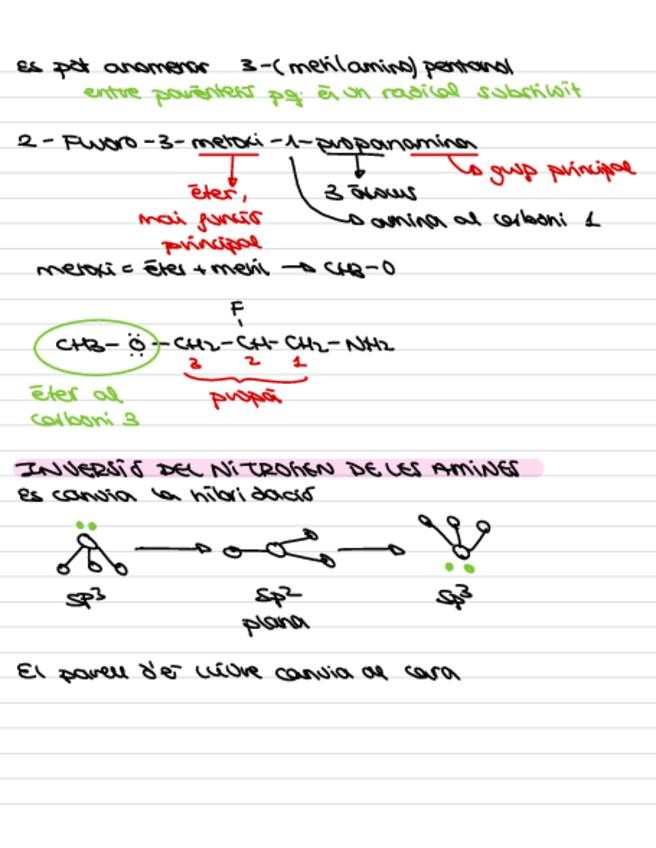 es pot anomenar 3-(metilamino) pentanol
entre parèntesis pq és un radical substituït
2-Fluoro-3-metoxi-1-propanamina
grup principal
èter,
mai funció
principal
3 àtoms
amina al carboni 1
metoxi = èter + metil → CH3-O
F
CH3-Ö-CH2-CH-CH2-NH2
3 2 1
èter al
carboni 3
propà
INVERSIÓ DEL NITROGEN DE LES AMINES
es canvia la hibridació
sp3 sp2 sp3
plana
El parell d'e- lliure canvia de cara